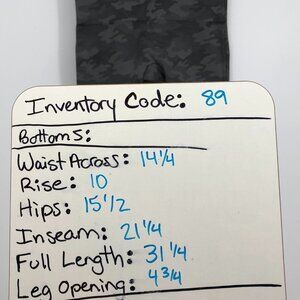 Inventory Code: 89
Bottoms:
Waist Across: 14 1/4
Rise: 10
Hips: 15 1/2
Inseam: 21 1/4
Full Length: 31 1/4
Leg Opening: 4 3/4